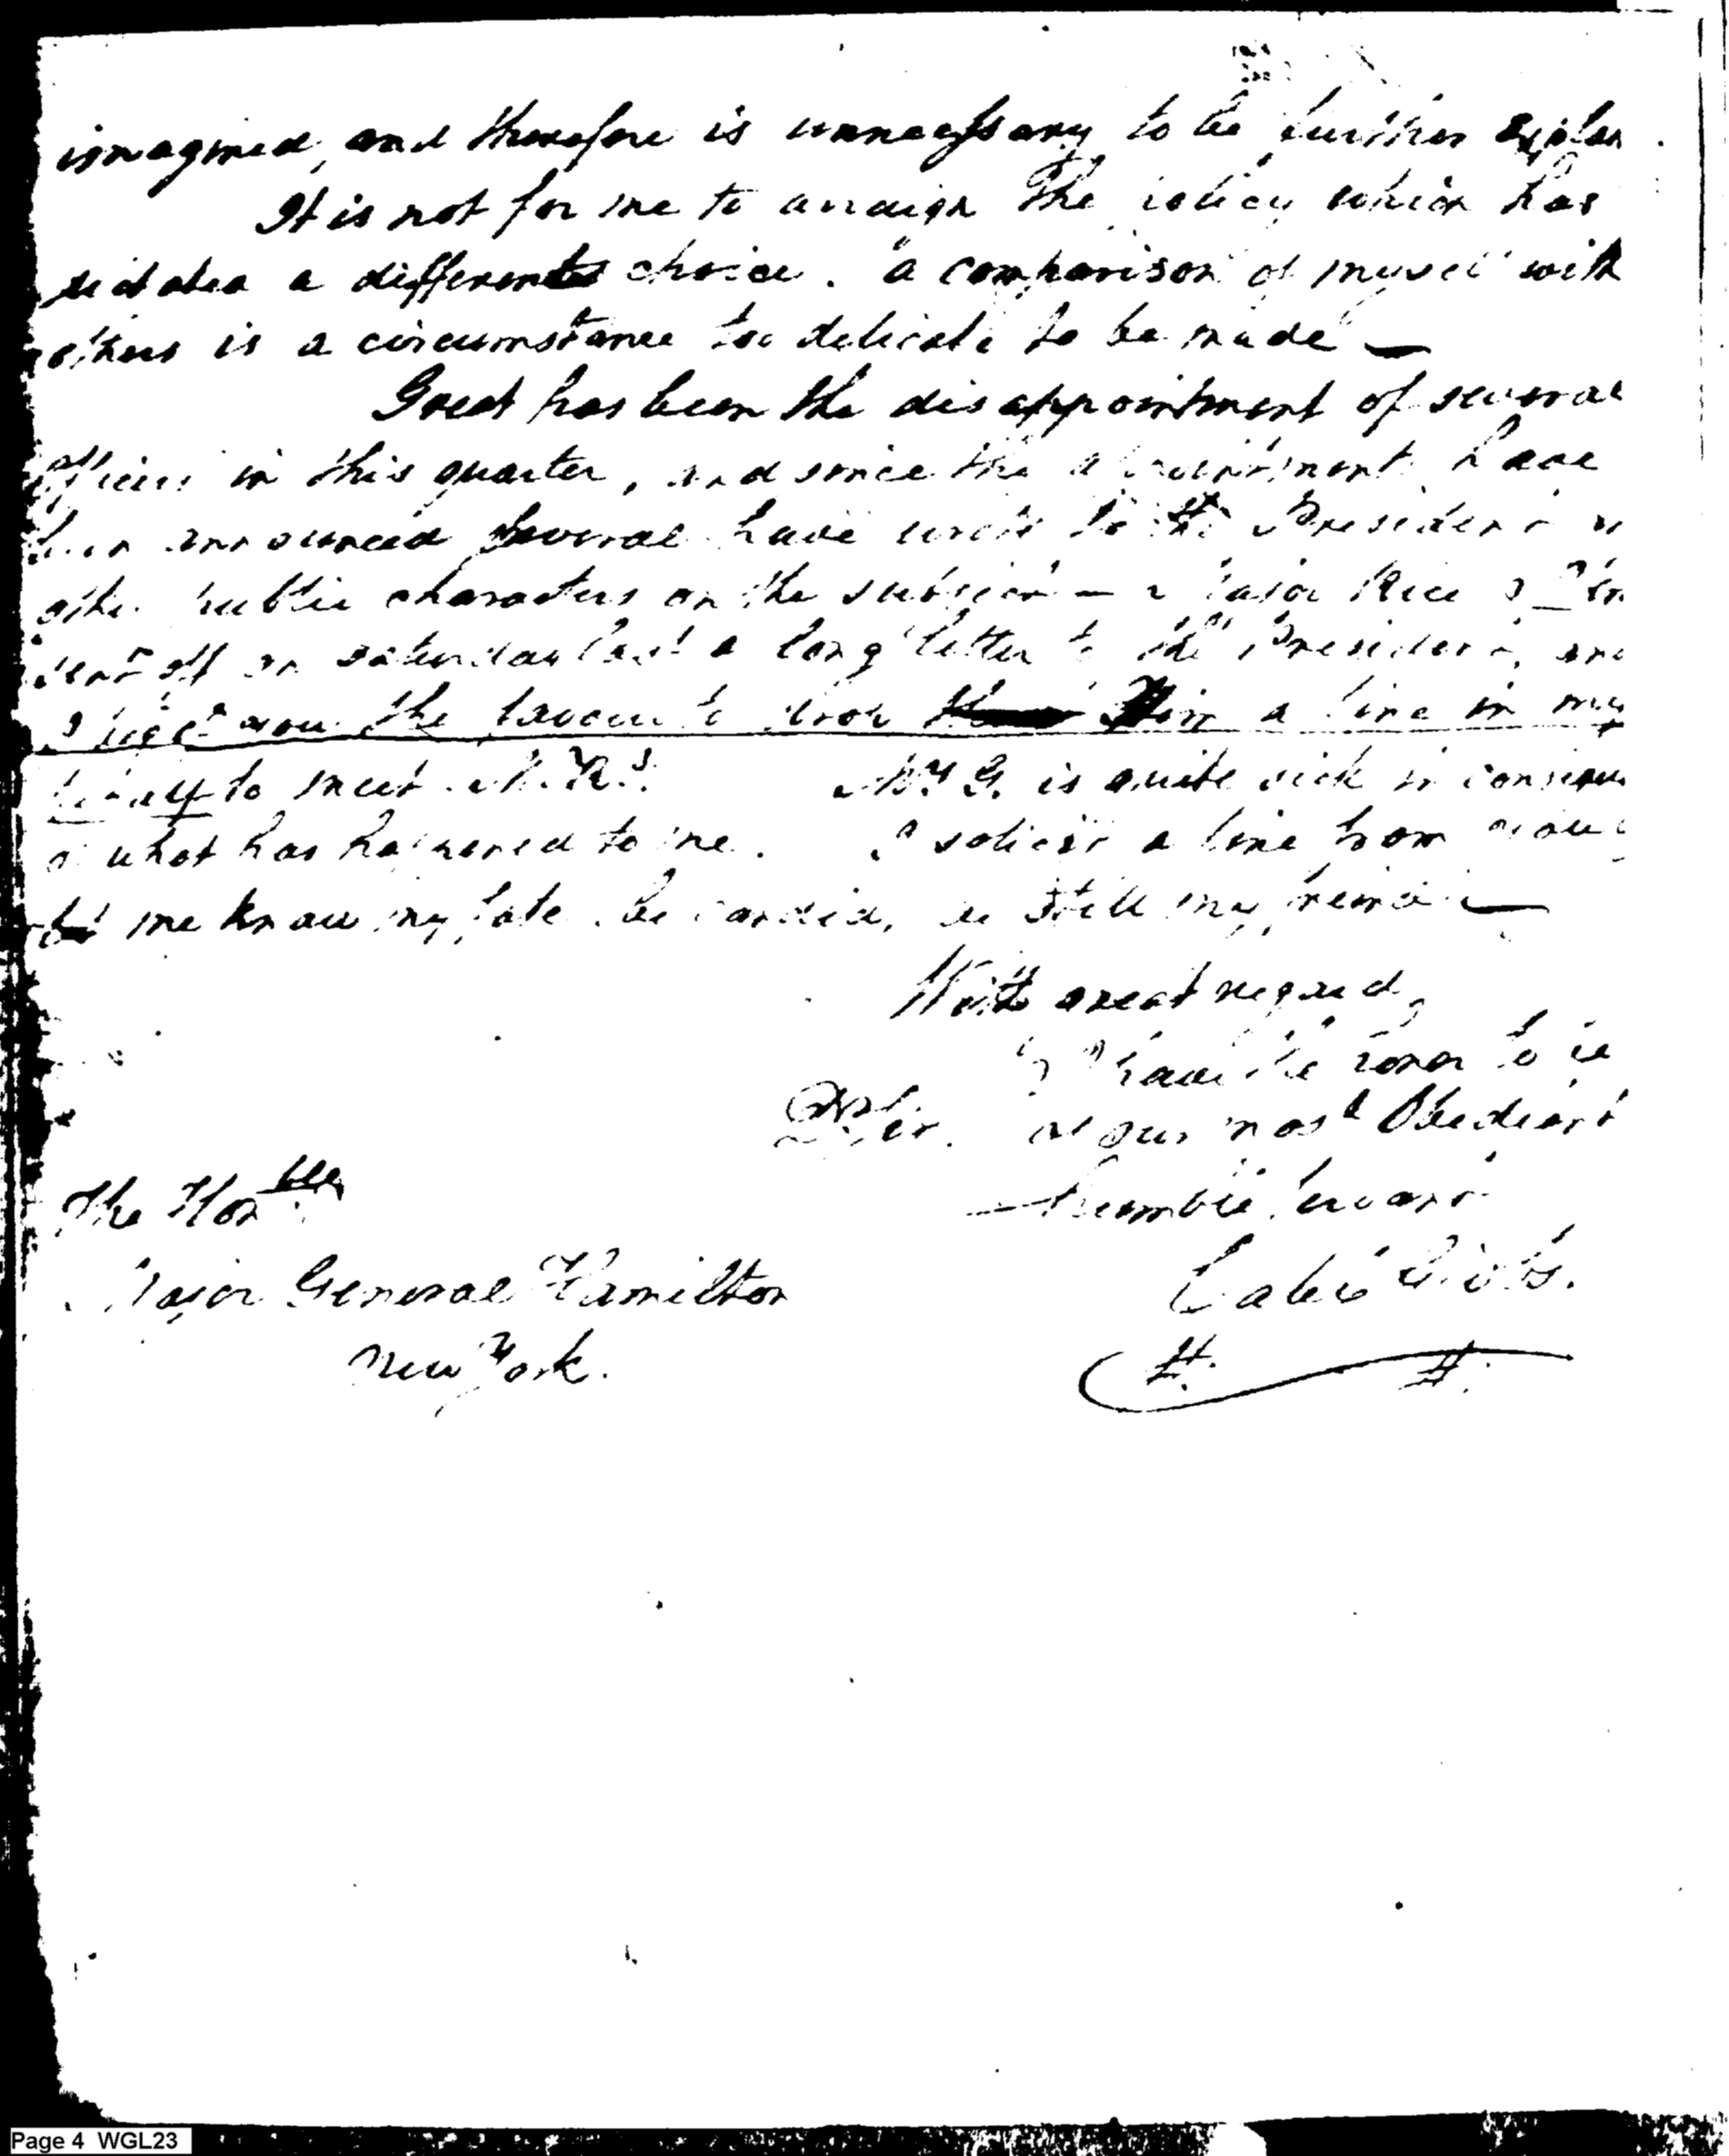 imagined, and therefore is unnecessary to be further explain
It is not for me to arraign the policy which has
dictated a different choice. a comparison of myself with
others is a circumstance too delicate to be made —
Great has been the disappointment of several
officers in this quarter, and since the appointments have
been announced several have wrote to the President &
other public characters on the subject — Major Rice
sent off on saturday last a long letter to the President, and
I beg you the favour to drop him a line in my
to meet M. R's. Mrs G. is quite sick in consequ
of what has happened to me. I solicit a line from you
let me know my fate. be candid, be still my friend —
With great regard,
I have the honor to be
Sir. your most Obedient
humble servant
Caleb Gibbs.
The Honble
Major General Hamilton
New York.
Page 4 WGL23